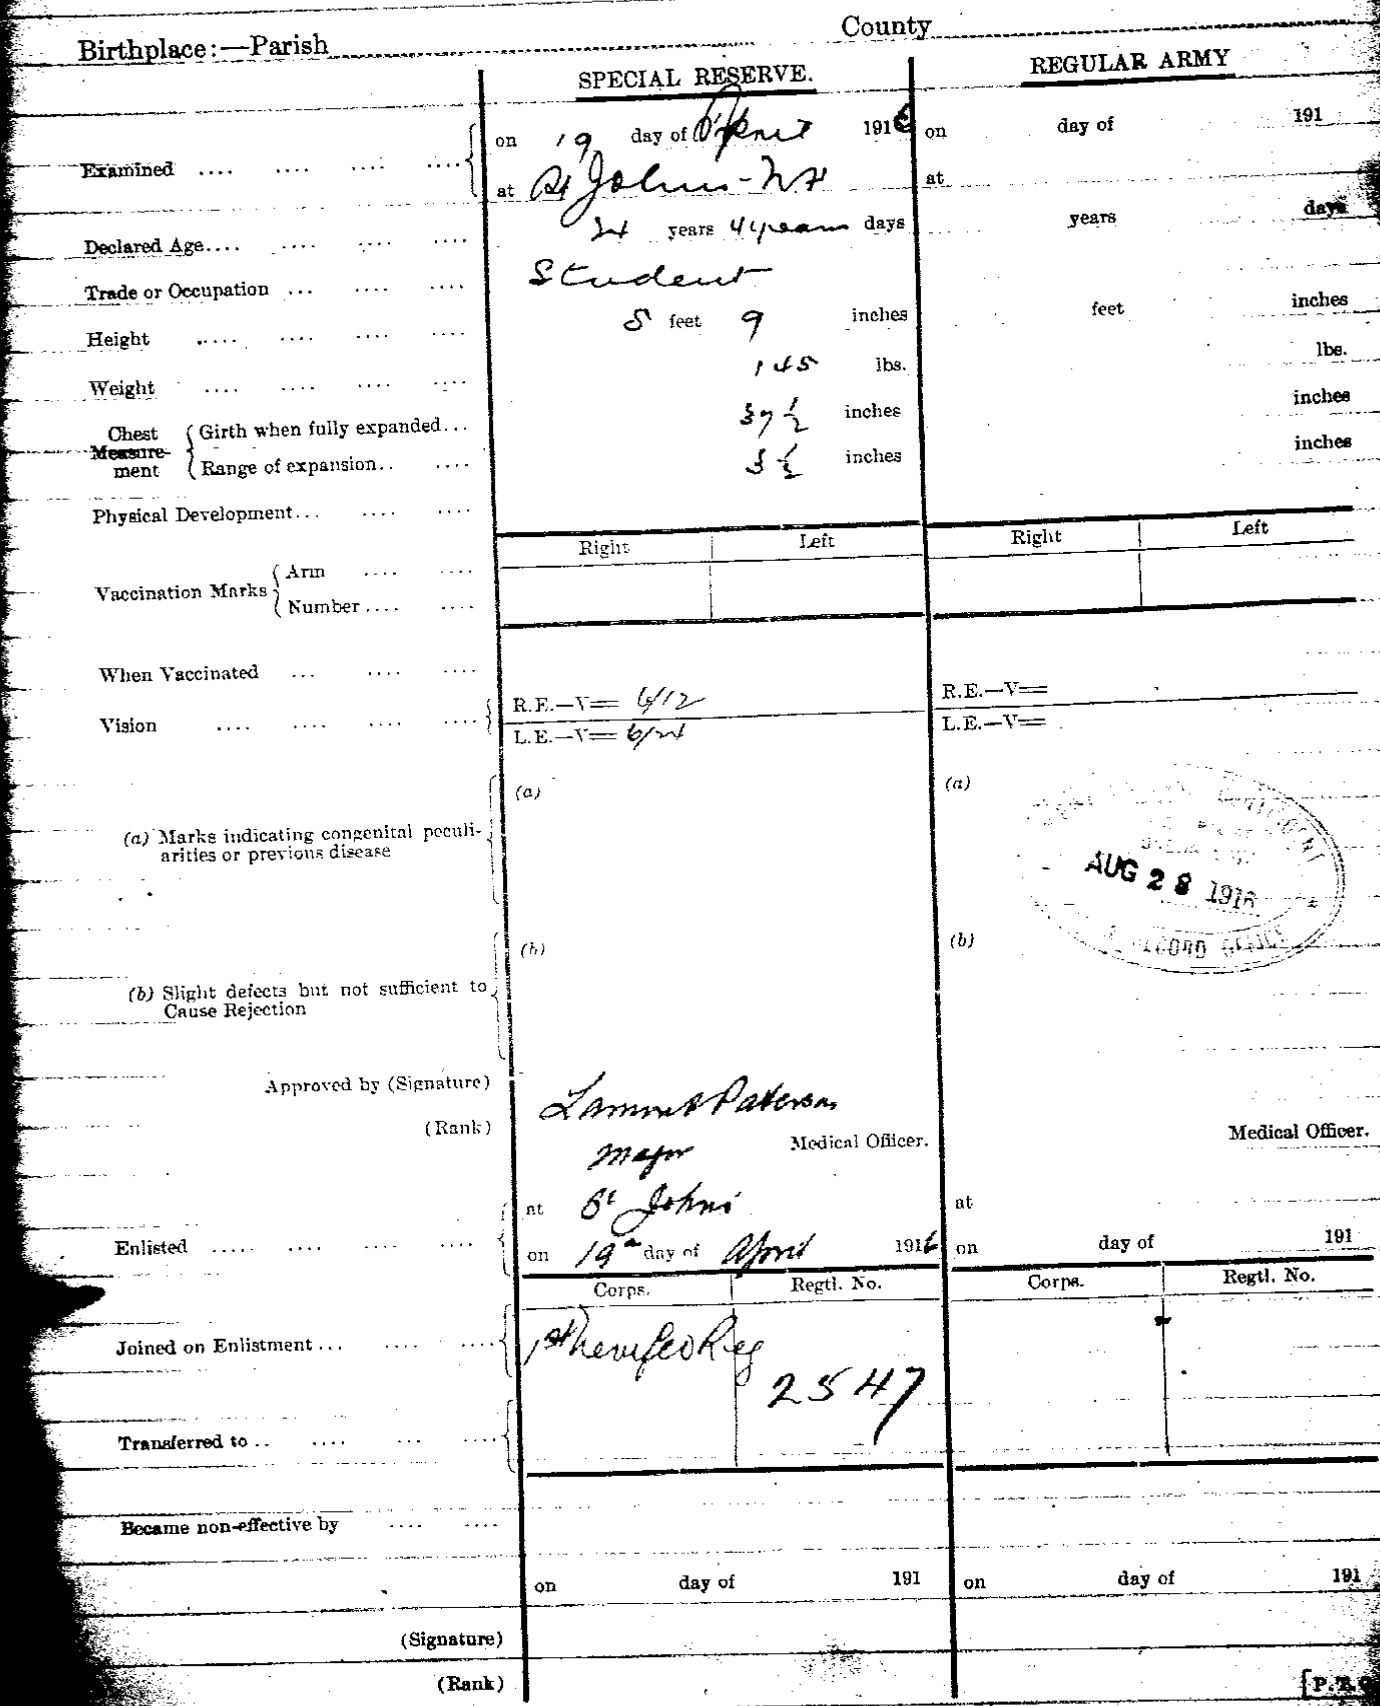 Birthplace:—Parish County
SPECIAL RESERVE. REGULAR ARMY
Examined .... .... .... .... on 19 day of April 1916 on day of 191
at St Johns - Nfl at
Declared Age.... .... .... .... 24 years 4 years days years days
Trade or Occupation ... .... .... Student
Height .... .... .... .... 5 feet 9 inches feet inches
Weight .... .... .... .... 145 lbs. lbs.
Chest Measure-ment Girth when fully expanded... 37 1/2 inches inches
Range of expansion.. .... 3 1/2 inches inches
Physical Development... .... ....
Right Left Right Left
Vaccination Marks Arm .... ....
Number.... ....
When Vaccinated ... .... ....
Vision .... .... .... .... R.E.—V= 6/12 R.E.—V=
L.E.—V= 6/24 L.E.—V=
(a) (a)
(a) Marks indicating congenital peculi-
arities or previous disease
AUG 28 1916
RECORD OFFICE
(b) (b)
(b) Slight defects but not sufficient to
Cause Rejection
Approved by (Signature) Paterson
(Rank) Major Medical Officer. Medical Officer.
at St Johns at
Enlisted ..... .... .... .... on 19th day of April 1916 on day of 191
Corps. Regtl. No. Corps. Regtl. No.
Joined on Enlistment... .... .... 1st Reg
2547
Transferred to .. .... ... ....
Became non-effective by .... ....
on day of 191 on day of 191
(Signature)
(Rank)
[P.T.O